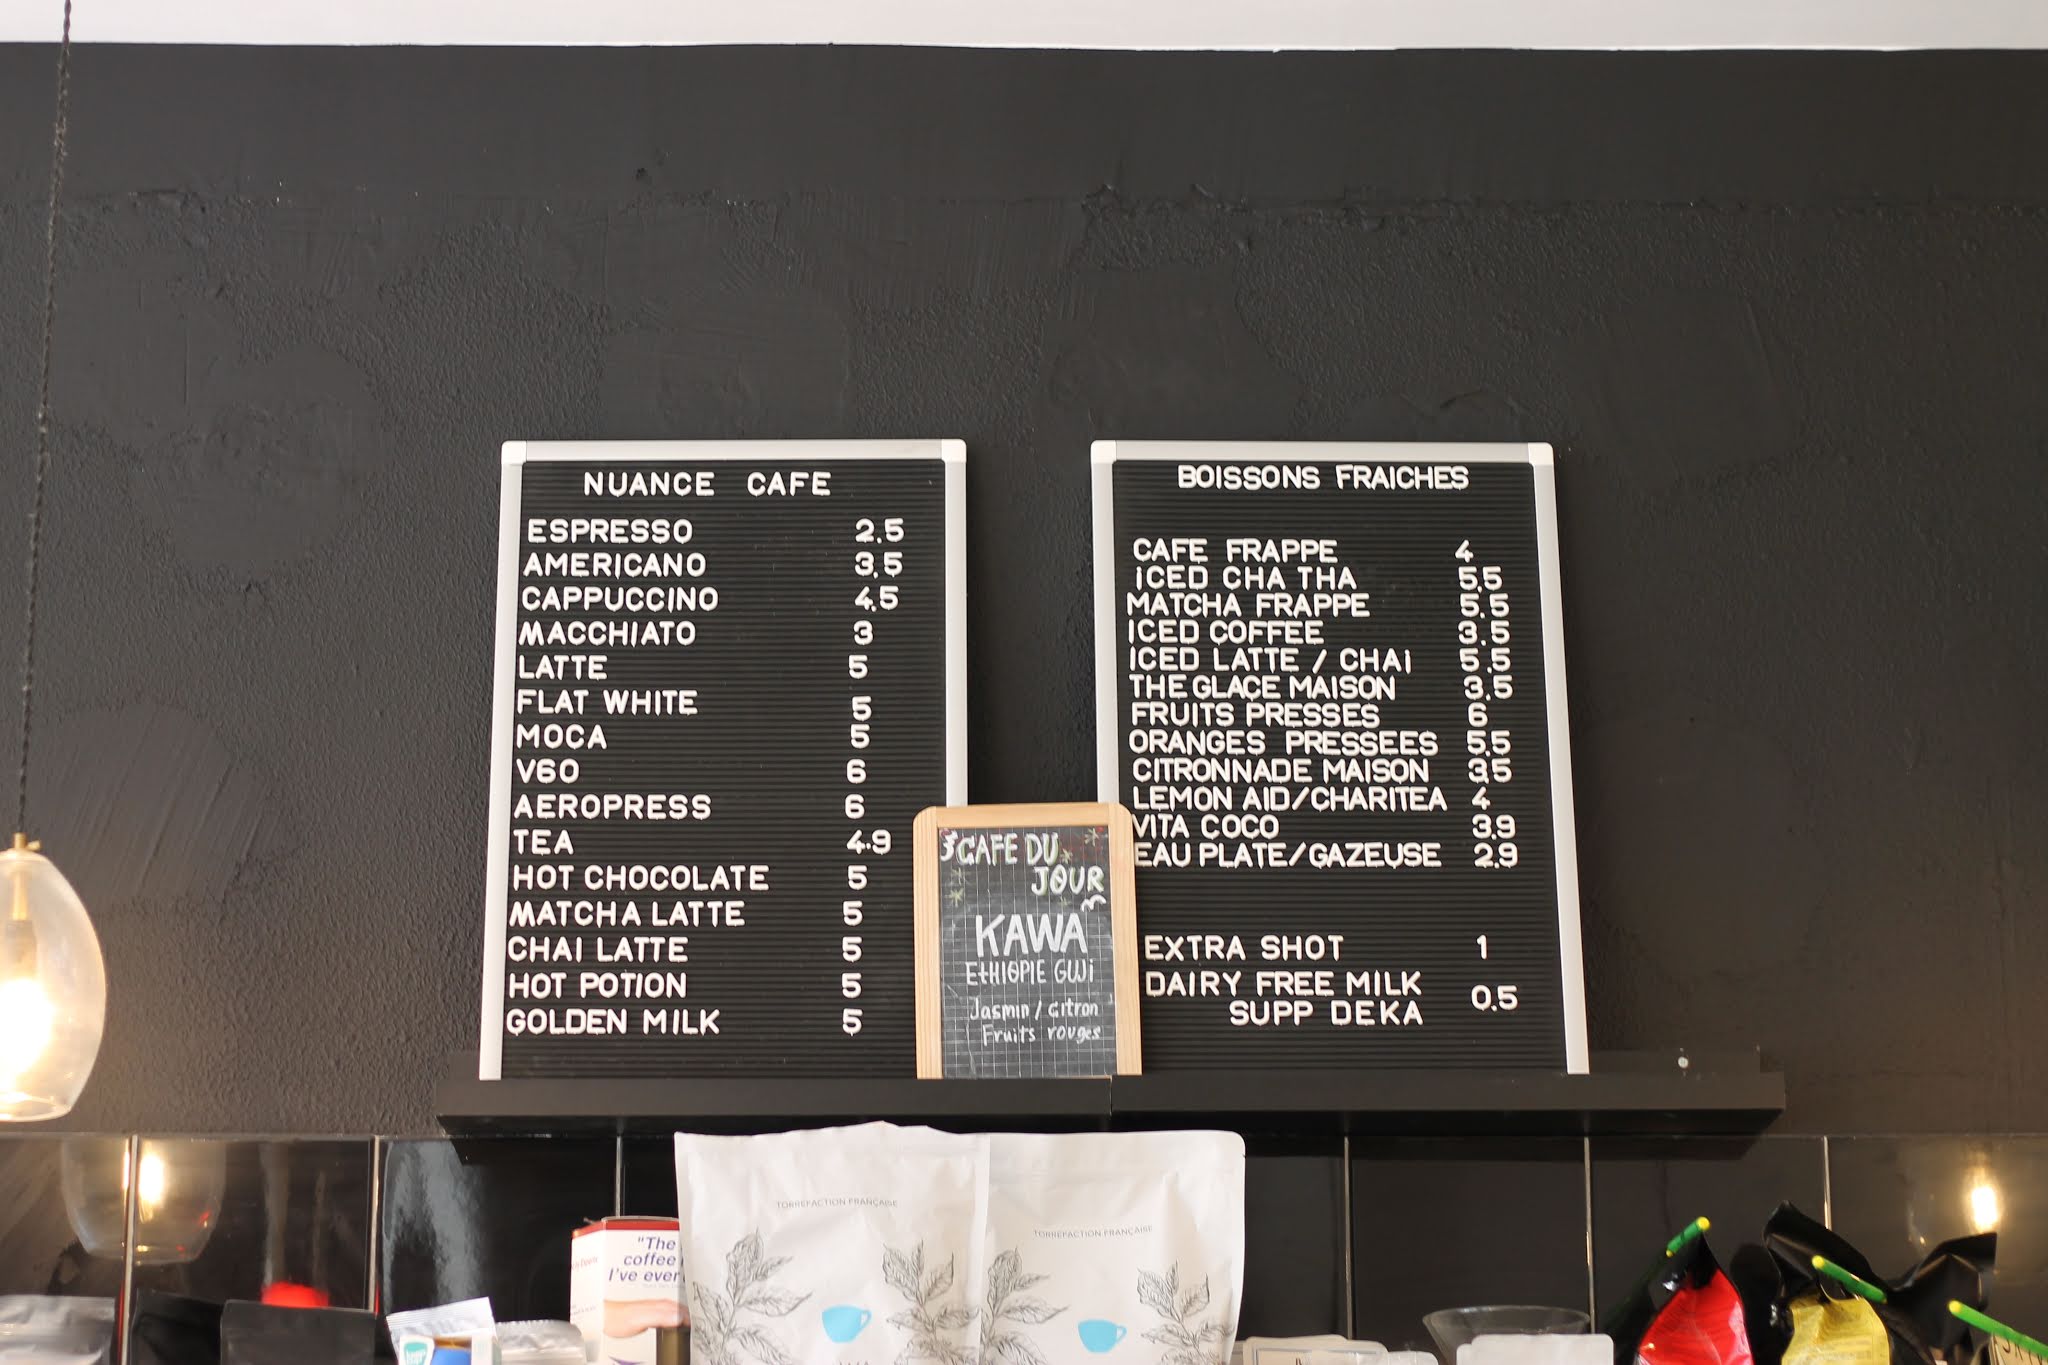 NUANCE CAFE
ESPRESSO 2.5
AMERICANO 3.5
CAPPUCCINO 4.5
MACCHIATO 3
LATTE 5
FLAT WHITE 5
MOCA 5
V60 6
AEROPRESS 6
TEA 4.9
HOT CHOCOLATE 5
MATCHA LATTE 5
CHAI LATTE 5
HOT POTION 5
GOLDEN MILK 5
CAFE DU
JOUR
KAWA
ETHIOPIE GUJI
Jasmin / citron
Fruits rouges
BOISSONS FRAICHES
CAFE FRAPPE 4
ICED CHA THA 5.5
MATCHA FRAPPE 5.5
ICED COFFEE 3.5
ICED LATTE / CHAI 5.5
THE GLACE MAISON 3.5
FRUITS PRESSES 6
ORANGES PRESSEES 5.5
CITRONNADE MAISON 3.5
LEMON AID/CHARITEA 4
VITA COCO 3.9
EAU PLATE/GAZEUSE 2.9
EXTRA SHOT 1
DAIRY FREE MILK
SUPP DEKA 0.5
TORREFACTION FRANÇAISE
TORREFACTION FRANÇAISE
"The
coffee
I've ever